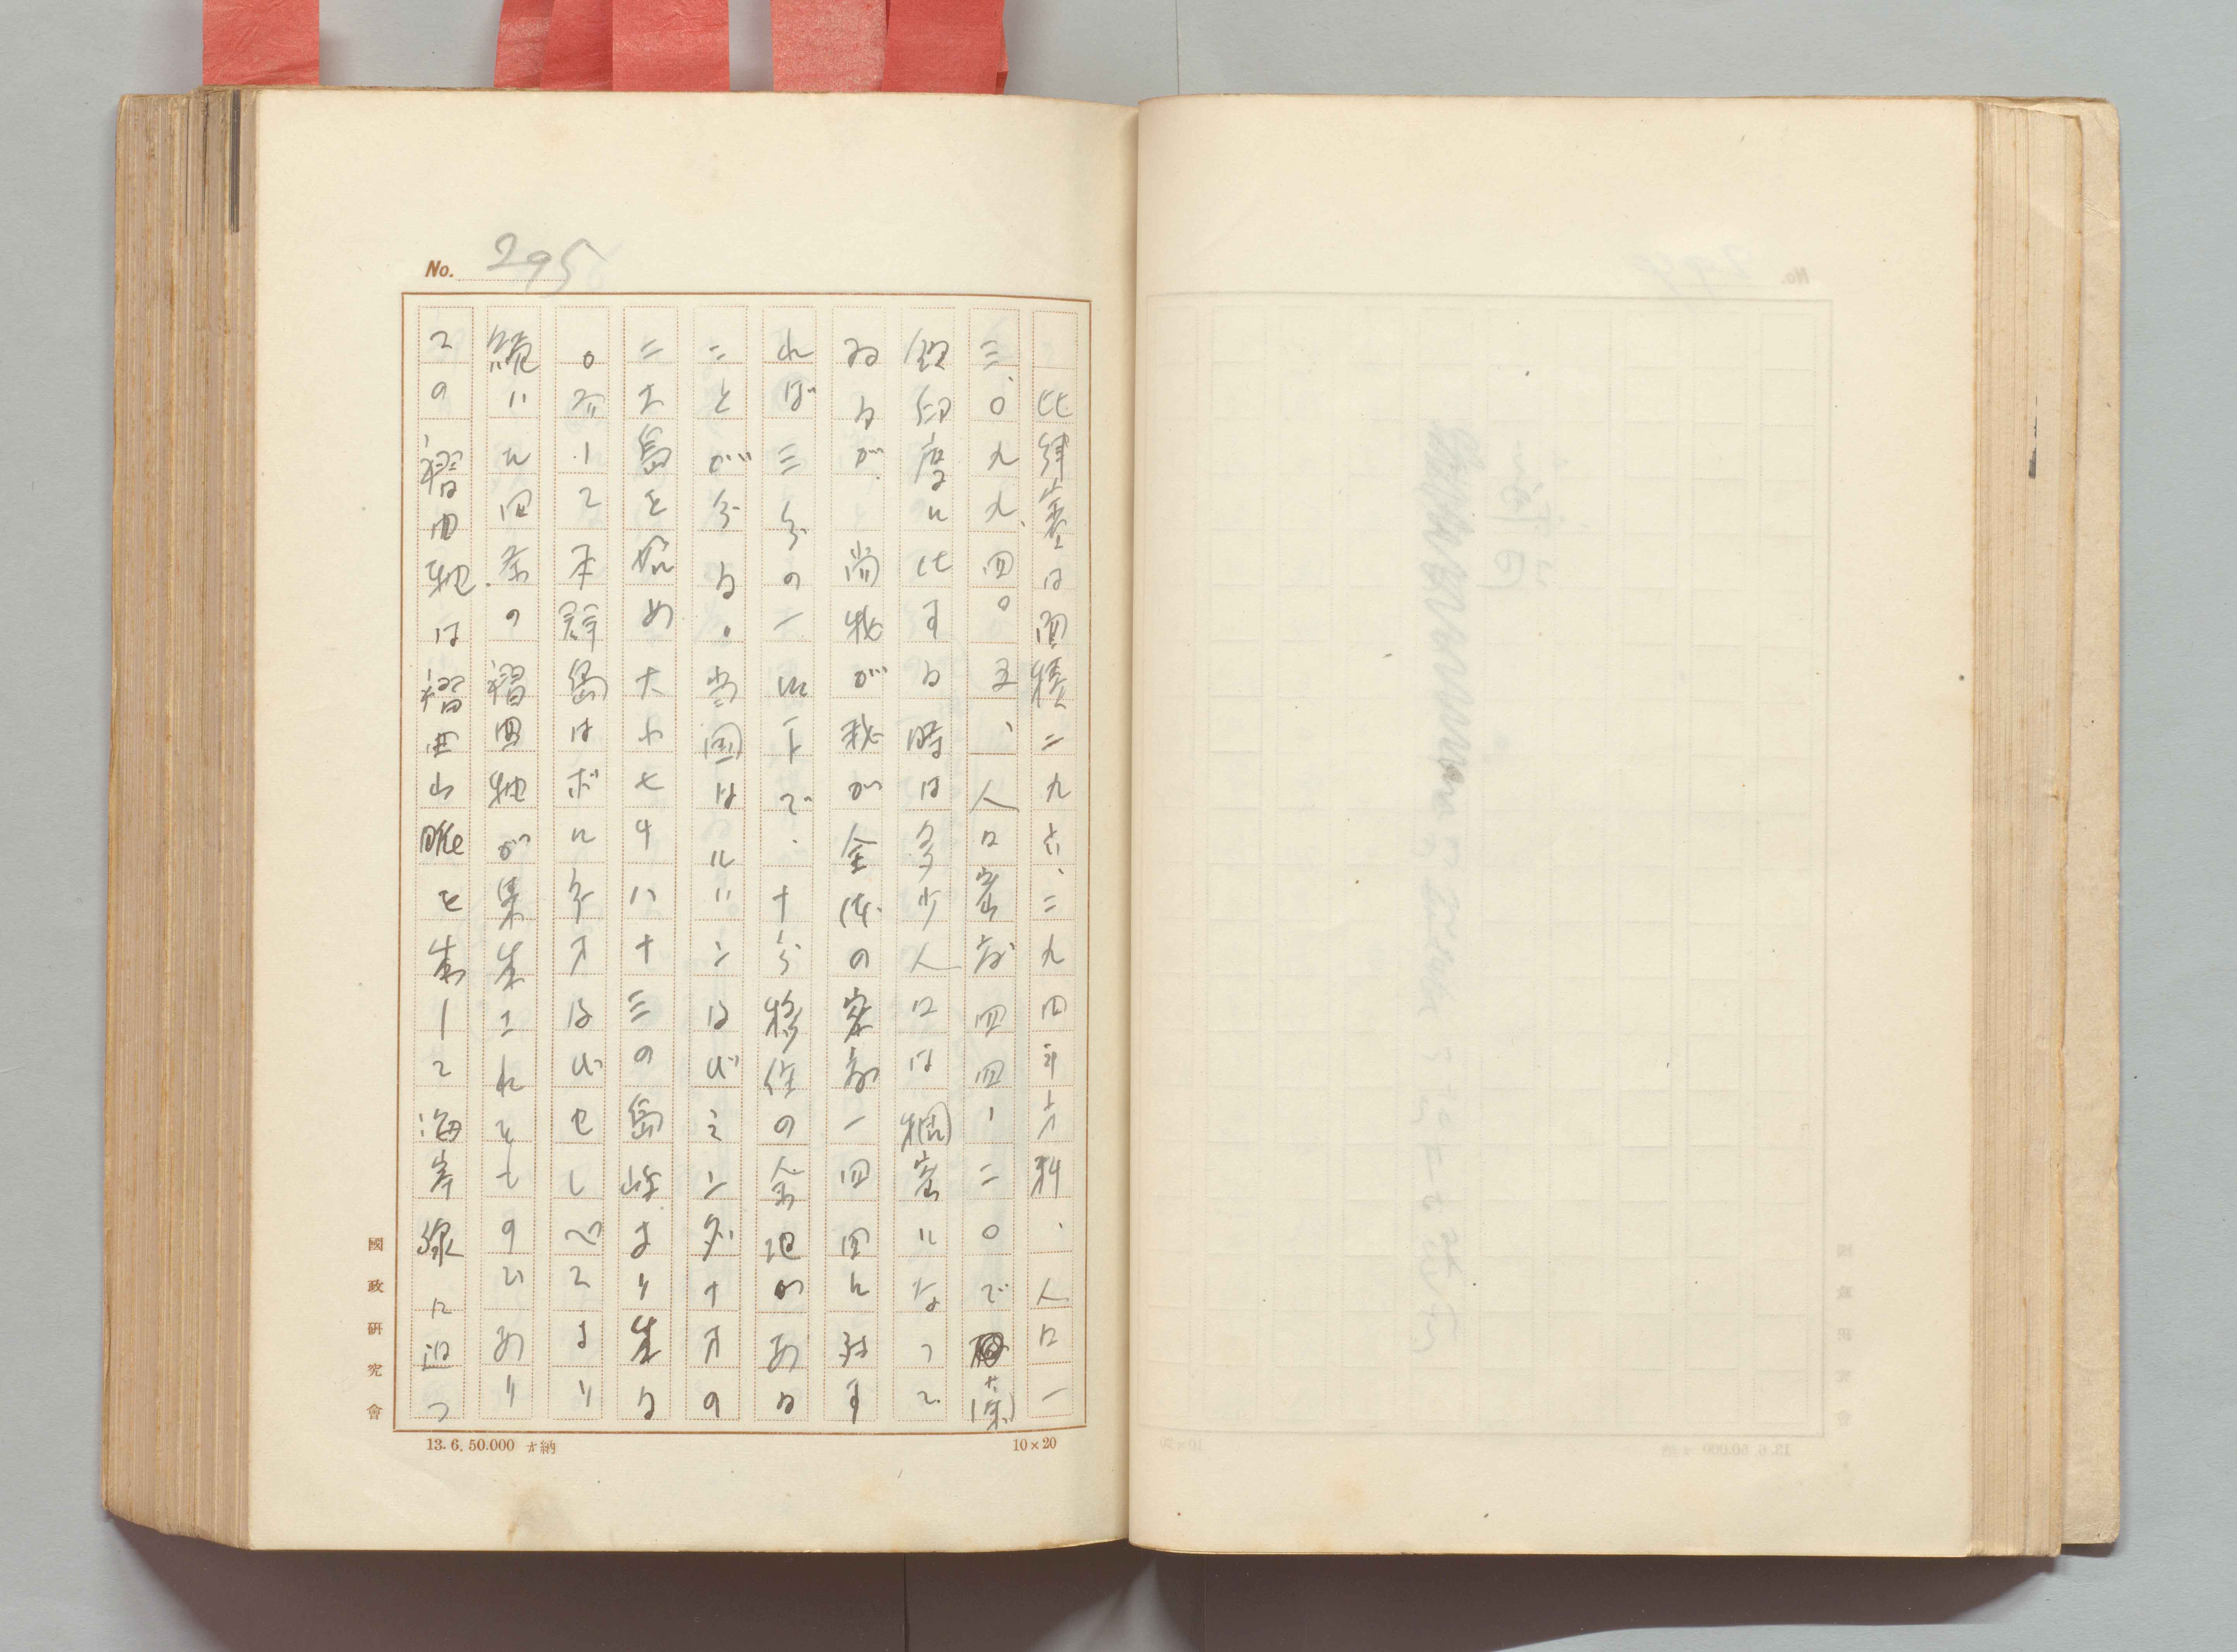 No. 295
比律賓は面積二九六、二九四平方粁、人口一
三、〇九九、四〇五、人口密度四四・二〇で蘭
領印度に比する時は多少人口は稠密になつて
ゐるが、尚我が我が全体の密度一四四に対す
れば三分の一以下で、十分移住の余地がある
ことが分る。当国はルソン及びミンダナオの
二大島を始め大小七千八十三の島嶼より成る
。而して本群島はボルネオ及びセレベスより
続いた四条の褶曲地が集成されたものであり
この褶曲地は褶曲山脈を成して海岸線に迫つ
國政研究會
13.6.50.000 納
10×20